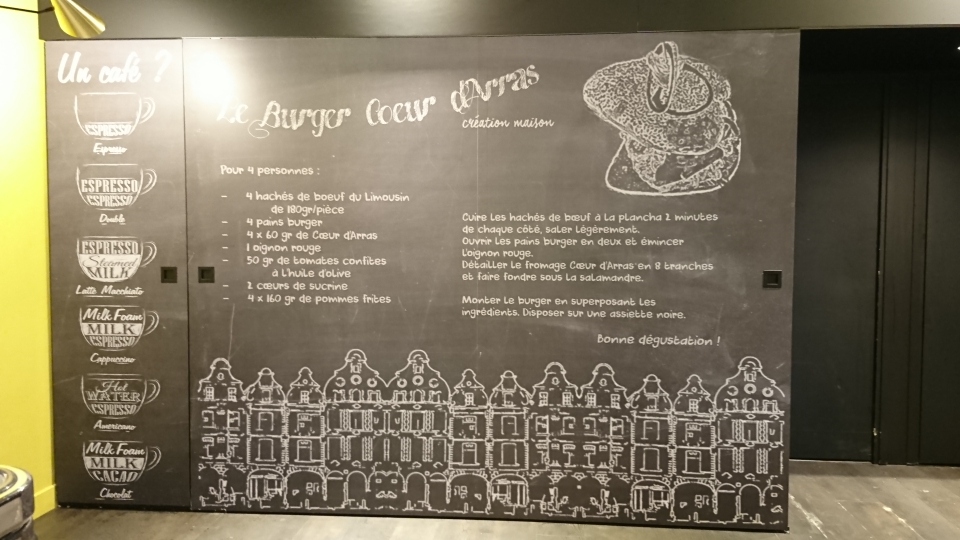 Un café ?
ESPRESSO
Espresso
ESPRESSO
ESPRESSO
Double
ESPRESSO
Steamed
MILK
Latte Macchiato
Milk Foam
MILK
ESPRESSO
Cappuccino
Hot
WATER
ESPRESSO
Americano
Milk Foam
MILK
CACAO
Chocolat
Le Burger Coeur d'Arras
création maison
Pour 4 personnes :
- 4 hachés de boeuf du Limousin
de 180gr/pièce
- 4 pains burger
- 4 x 60 gr de Cœur d'Arras
- 1 oignon rouge
- 50 gr de tomates confites
à l'huile d'olive
- 2 cœurs de sucrine
- 4 x 160 gr de pommes frites
Cuire les hachés de bœuf à la plancha 2 minutes
de chaque côté, saler légèrement.
Ouvrir les pains burger en deux et émincer
l'oignon rouge.
Détailler le fromage Cœur d'Arras en 8 tranches
et faire fondre sous la salamandre.
Monter le burger en superposant les
ingrédients. Disposer sur une assiette noire.
Bonne dégustation !